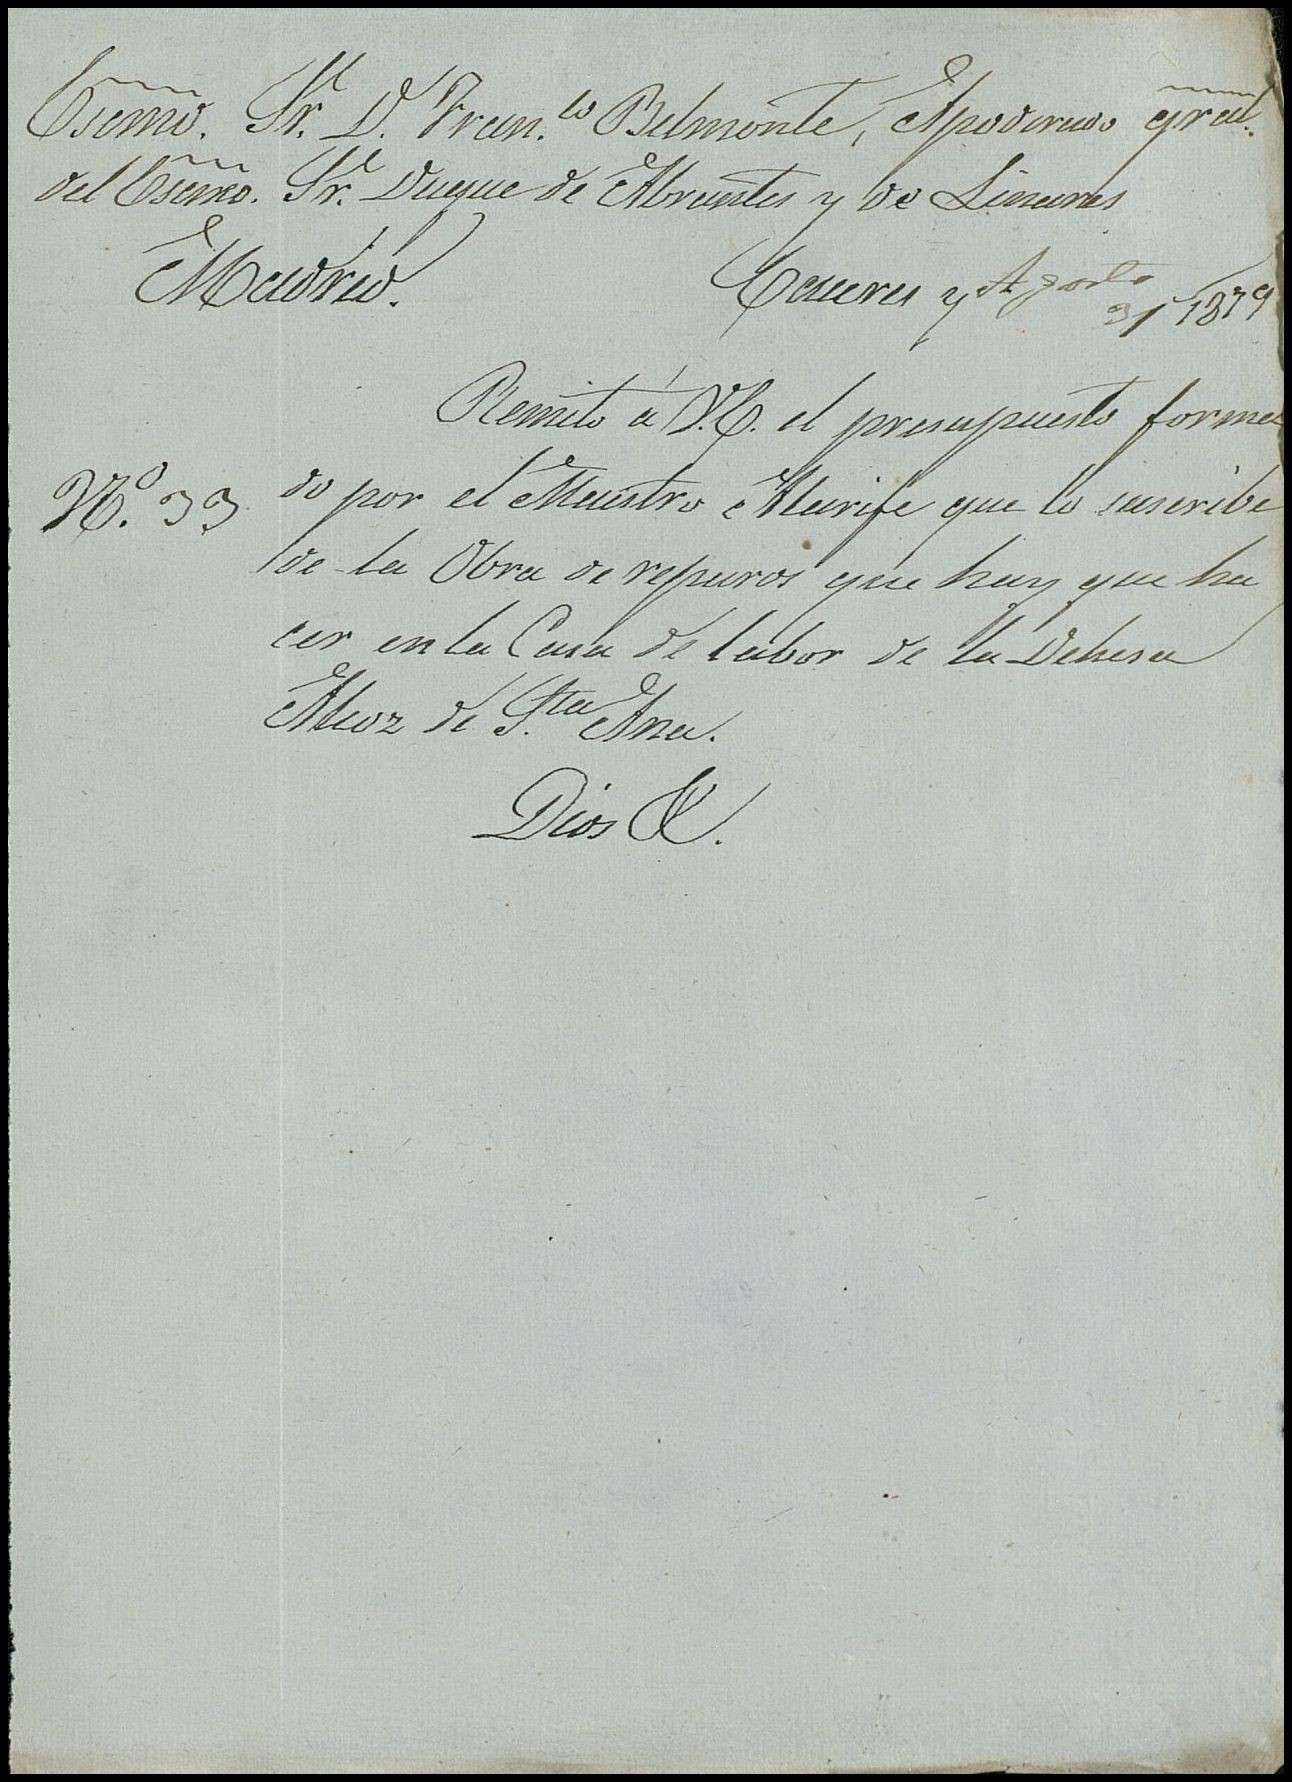 Escmo. Sr. D. Fran.co Belmonte, Apoderado gral.
del Escmo. Sr. Duque de Abrantes y de Linares
Madrid.
Caceres y Agosto
31 1879
Remito á V.E. el presupuesto forma
Nº. 33
do por el Maestro Alarife que lo suscribe
de la Obra de reparos que hay que ha
cer en la Casa de labor de la Dehesa
Alcoz de Sta Ana.
Dios &.